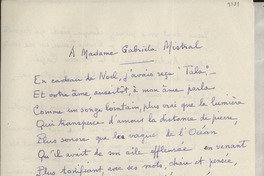 A Madame Gabriela Mistral
En cadeau de Noël, j'avais reçu "Tala"
Et votre âme aussitôt, à mon âme parla
Comme un songe lointain, plus vrai que la lumière
Qui transperce d'amour la distance de pierre,
Plus sonore que les vagues de l'Océan
Qu'il avait de son aile effleurées en venant
Plus tonifiant, avec ses mots, chair et pensée,